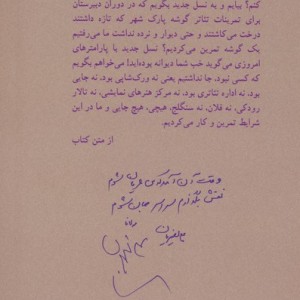 کنم؟ بیایم و به نسل جدید بگویم که در دوران دبیرستان
برای تمرینات تئاتر گوشه پارک شهر که تازه داشتند
درخت می‌کاشتند و حتی دیوار و نرده نداشت ما می‌رفتیم
یک گوشه تمرین می‌کردیم؟ نسل جدید با پارامترهای
امروزی می‌گوید خب شما دیوانه بوده‌اید! می‌خواهم بگویم
که کسی نبود، جا نداشتیم یعنی نه ورک‌شاپی بود. نه جایی
بود. نه اداره تئاتری بود، نه مرکز هنرهای نمایشی، نه تالار
رودکی، نه فلان، نه سنگلج، هیچی، هیچ جایی و ما در این
شرایط تمرین و کار می‌کردیم.
از متن کتاب
وقت آن آمد که من عریان شوم
نقش بگذارم سراسر جان شوم